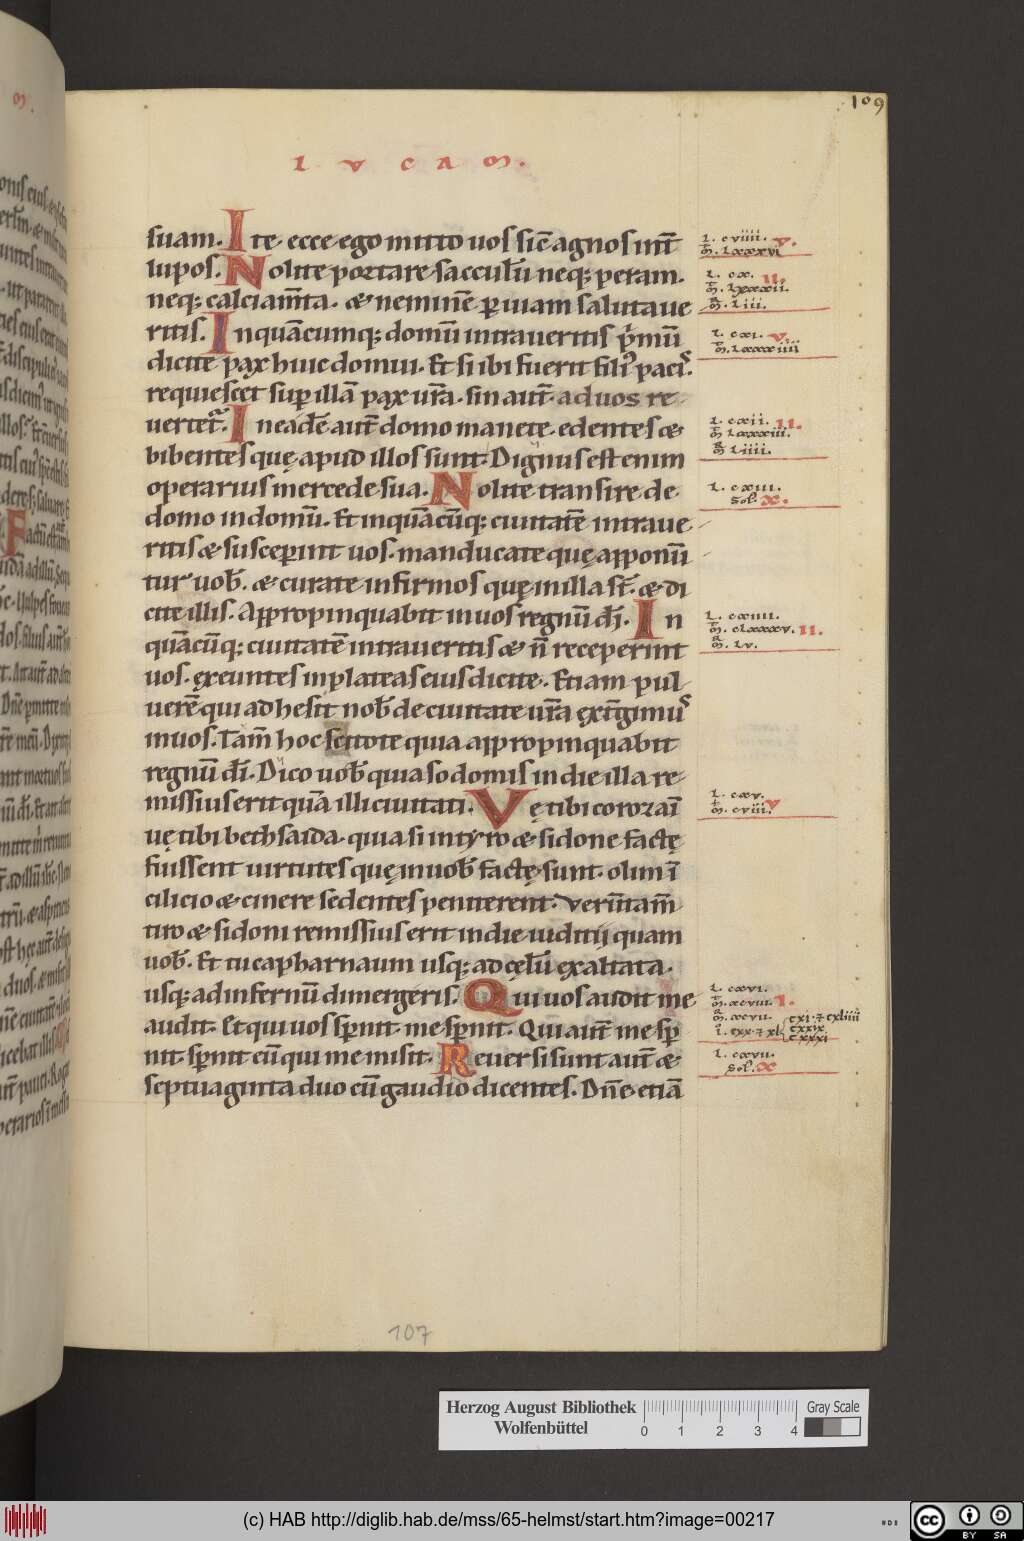 109
LVCAM.
suam. Ite ecce ego mitto uos sic̄ agnos int̄
lupos. Nolite portare sacculū neq; peram.
neq; calciam̄ta. & neminē p̱ uiam salutaue
ritis. Inquācumq; domū intraueritis pͥmū
dicite pax huic domui. Et si ibi fuerit filiꝰ pacis.
requiescet sup̱ illā pax ur̄a. sin aut̄ ad uos re
uertet᷑. In eadē aut̄ domo manete. edentes &
bibentes quę apud illos sunt. Dignus est enim
operarius mercede sua. Nolite transire de
domo in domū. Et inquācūq; ciuitatē intraue
ritis & suscep̱int uos. manducate quę apponū
tur uob̄. & curate infirmos quę in illa st̄. & di
cite illis. Appropinquabit in uos regnū dī. In
quācūq; ciuitatē intraueritis & n̄ receperint
uos. ęxeuntes in plateas eius dicite. Etiam pul
uerē qui adhesit nob̄ de ciuitate ur̄a ęxt̄gimus
in uos. Tam̄ hoc scitote quia appropinquabit
regnū dī. Dico uob̄ quia sodomis in die illa re
missius erit quā illi ciuitati. Vę tibi corozaī
uę tibi bethsaida. quia si in tyro & sidone factę
fuissent uirtutes quę in uob̄ factę sunt. olim ī
cilicio & cinere sedentes peniterent. Verūtam̄
tiro & sidoni remissius erit in die iuditij quam
uob̄. Et tu capharnaum usq; ad cęlū ęxaltata.
usq; ad infernū dimergeris. Qui uos audit me
audit. Et qui uos sp̱nit me sp̱nit. Qui aut̄ me sp̱
nit. sp̱nit eū qui me misit. Reuersi sunt aut̄ &
septuaginta duo cū gaudio dicentes. Dn̄e etiā
L. cviiii. V.
m̄. Lxxxvi
L. cx. II.
m̄. Lxxxii.
m̄. Liii.
L. cxi. V.
m̄. Lxxxiiii
L. cxii. II.
m̄. Lxxxiii.
m̄. Liiii.
L. cxiii.
sol. X.
L. cxiiii.
m̄. cLxxxxv. II.
m̄. Lv.
L. cxv.
m̄. cviii. V
L. cxvi.
m̄. xcviii. I.
m̄. xcvii. cxi. ⁊ cxliiii
I. cxx. ⁊ xl cxxix
cxxxi
L. cxvii.
sol. X
107
Herzog August Bibliothek
Wolfenbüttel
0 1 2 3 4
Gray Scale
(c) HAB http://diglib.hab.de/mss/65-helmst/start.htm?image=00217
cc BY SA